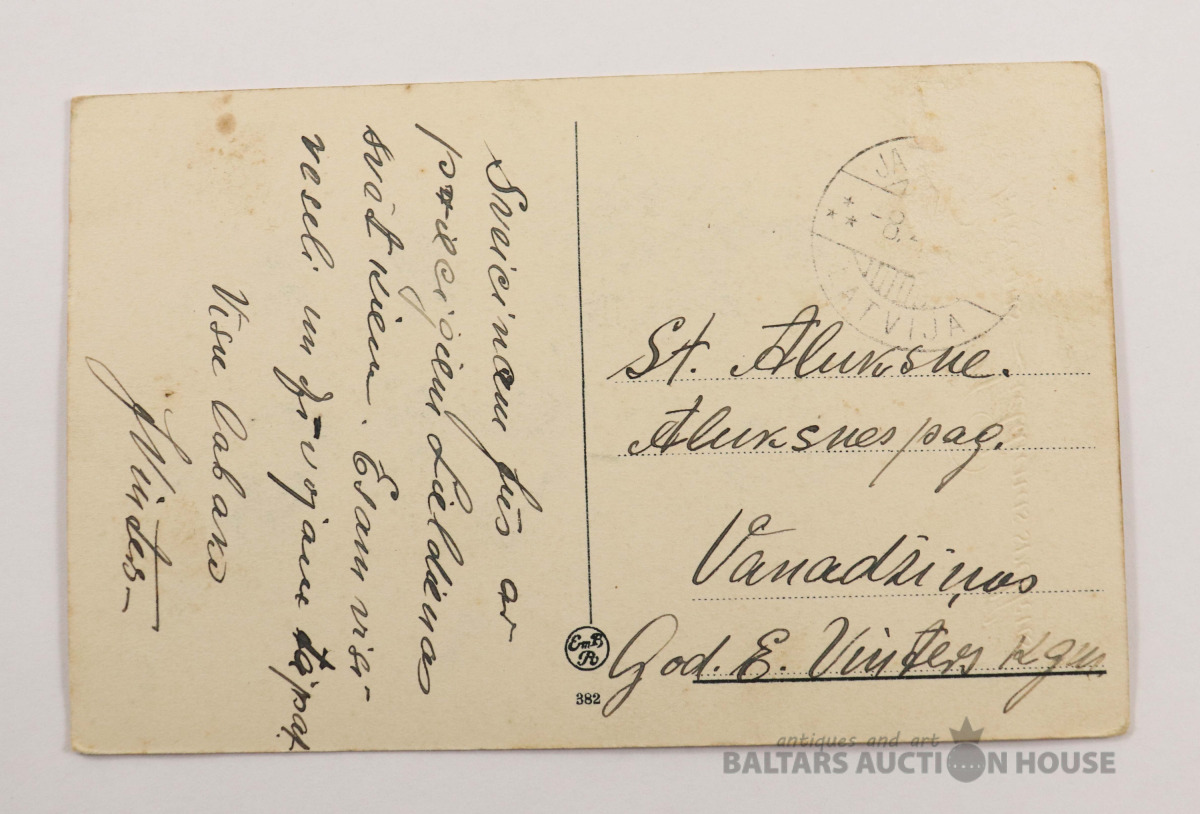 Sveicinam Jūs ar
priecīgiem Lieldienas
svētkiem. Esam visi
veseli un dzīvojam tāpat.
Visu labako
JVinters
JA
-8.4
LATVIJA
St. Aluksne.
Aluksnes pag.
Vanadžiņos
God. E. Vinters kgm
EmB
R
382
antiques and art
BALTARS AUCTION HOUSE